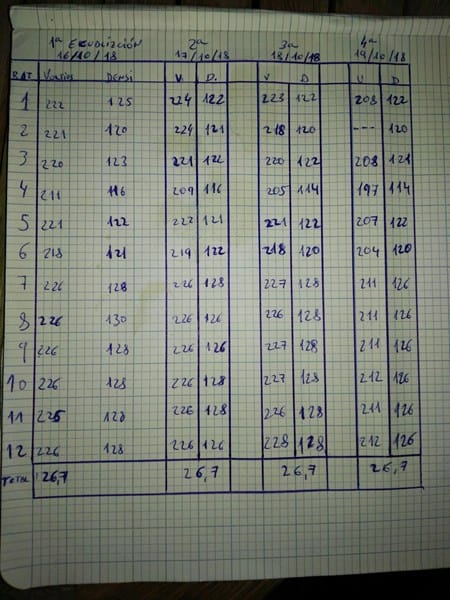 1ª ECUALIZACIÓN 2ª 3ª 4ª
16/10/18 17/10/18 18/10/18 19/10/18
BAT VOLTIOS DENSI V. D. V D V D
1 222 125 224 122 223 122 208 122
2 221 120 224 121 218 120 --- 120
3 220 123 221 122 220 122 208 121
4 211 116 209 116 205 114 197 114
5 221 122 222 121 221 122 207 122
6 218 121 219 122 218 120 204 120
7 226 128 226 128 227 128 211 126
8 226 130 226 126 226 128 211 126
9 226 128 226 126 227 128 211 126
10 226 128 226 128 227 128 212 126
11 225 128 226 128 226 128 211 126
12 226 128 226 126 228 128 212 126
TOTAL 26,7 26,7 26,7 26,7